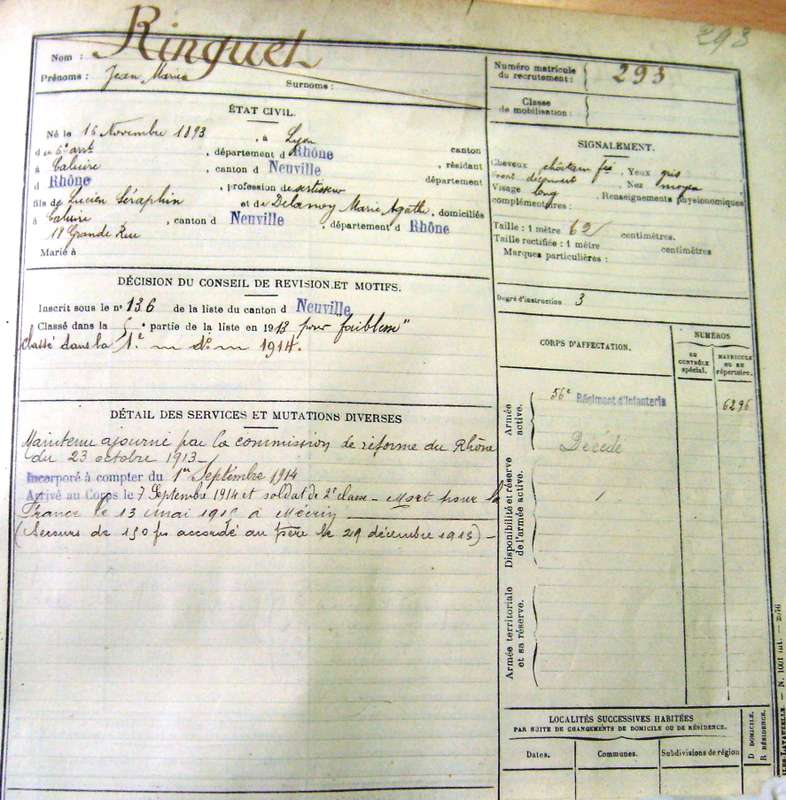 293
Nom : Ringuet
Prénoms : Jean Marie
Surnoms :
Numéro matricule du recrutement : 293
Classe de mobilisation :
ÉTAT CIVIL.
Né le 16 Novembre 1893, à Lyon
d u 6e arrt, département d Rhône canton
à Caluire, canton d Neuville, résidant
d Rhône, profession de sertisseur département
fils de Lucien Séraphin et de Delannoy Marie Agathe, domiciliés
à Caluire, canton d Neuville, département d Rhône
18 Grande Rue
Marié à
SIGNALEMENT.
Cheveux châtain Yeux gris
Front Nez moyen
Visage long. Renseignements physionomiques
complémentaires :
Taille : 1 mètre 62 centimètres.
Taille rectifiée : 1 mètre centimètres
Marques particulières :
Degré d'instruction 3
DÉCISION DU CONSEIL DE REVISION ET MOTIFS.
Inscrit sous le n° 136 de la liste du canton d Neuville
Classé dans la 5e partie de la liste en 1913 pour "faiblesse"
Classé dans la 1e 1914.
DÉTAIL DES SERVICES ET MUTATIONS DIVERSES
Maintenu ajourné par la commission de réforme du Rhône
du 23 octobre 1913
Incorporé à compter du 1er Septembre 1914
Arrivé au Corps le 7 Septembre 1914 et soldat de 2e classe – Mort pour la
France le 13 mai 1915 à Mécrin
(Secours de 150 fs accordé au père le 29 décembre 1915) –
CORPS D'AFFECTATION.
NUMÉROS
AU CONTRÔLE spécial.
MATRICULE OU AU répertoire.
Armée active.
56e Régiment d'Infanterie 6296
Décédé
Disponibilité et réserve de l'armée active.
Armée territoriale et sa réserve.
LOCALITÉS SUCCESSIVES HABITÉES
PAR SUITE DE CHANGEMENTS DE DOMICILE OU DE RÉSIDENCE.
Dates. Communes. Subdivisions de région
D DOMICILE.
R RÉSIDENCE.